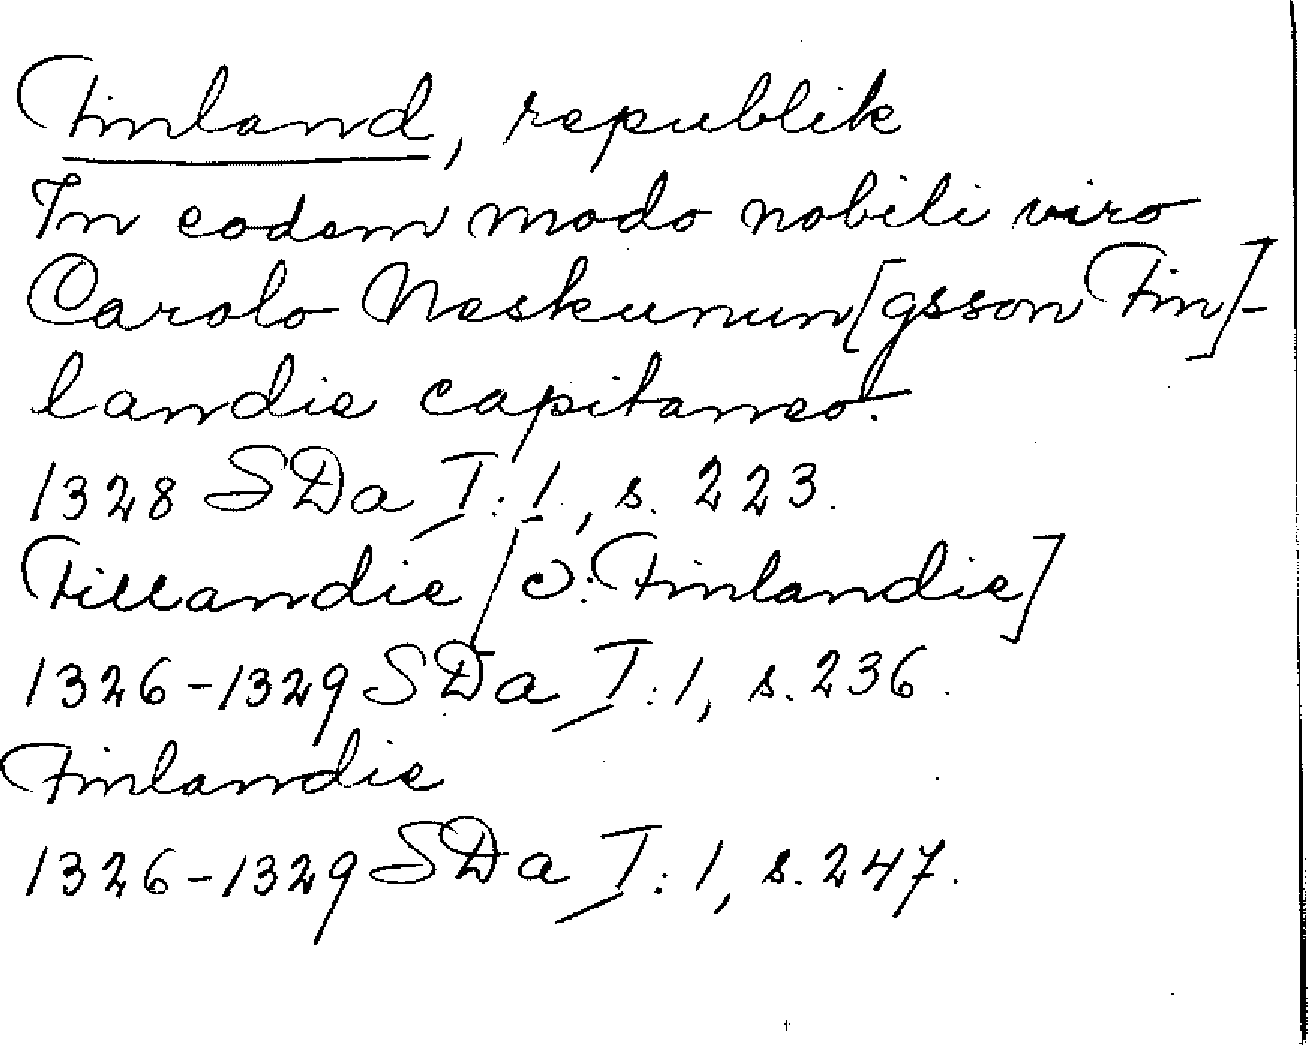 Finland, republik
In eodem modo nobili viro
Carolo Neskunun[gsson Fin]-
landie capitaneo.
1328 SDa I:1, s. 223.
Fillandie [ɔ: Finlandie]
1326-1329 SDa I:1, s. 236.
Finlandie
1326-1329 SDa I:1, s. 247.